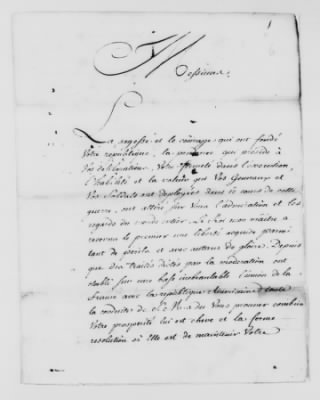 Messieurs,
La sagesse et le courage qui ont fondé
Votre république, la prudence qui préside à
Vos délibérations, Votre fermeté dans l'exécution
l'habileté et la valeur que Vos Généraux et
Vos Soldats ont deployées dans le cours de cette
guerre, ont attiré sur Vous l'admiration et les
regards du monde entier. Le Roi mon maître a
reconnu le premier une liberté acquise parmi
tant de périls et avec autant de gloire. Depuis
que des traités dictés par la moderation ont
établi sur une base inébranlable l'union de la
france avec la république Américaine, toute
la conduite de S. M. a du Vous prouver combien
Votre prospérité lui est chere et la ferme
resolution où Elle est de maintenir Votre